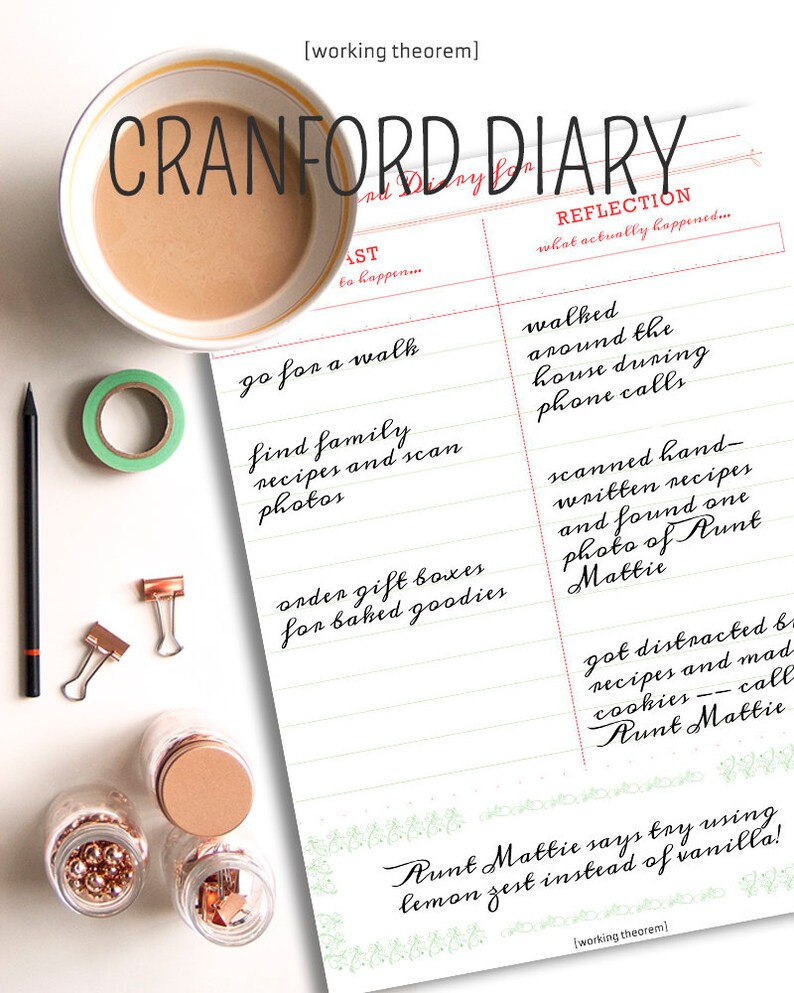 [working theorem]
CRANFORD DIARY
rd Diary for
AST
to happen...
REFLECTION
what actually happened...
go for a walk
walked
around the
house during
phone calls
find family
recipes and scan
photos
scanned hand–
written recipes
and found one
photo of Aunt
Mattie
order gift boxes
for baked goodies
got distracted b
recipes and mad
cookies –– call
Aunt Mattie
Aunt Mattie says try using
lemon zest instead of vanilla!
[working theorem]